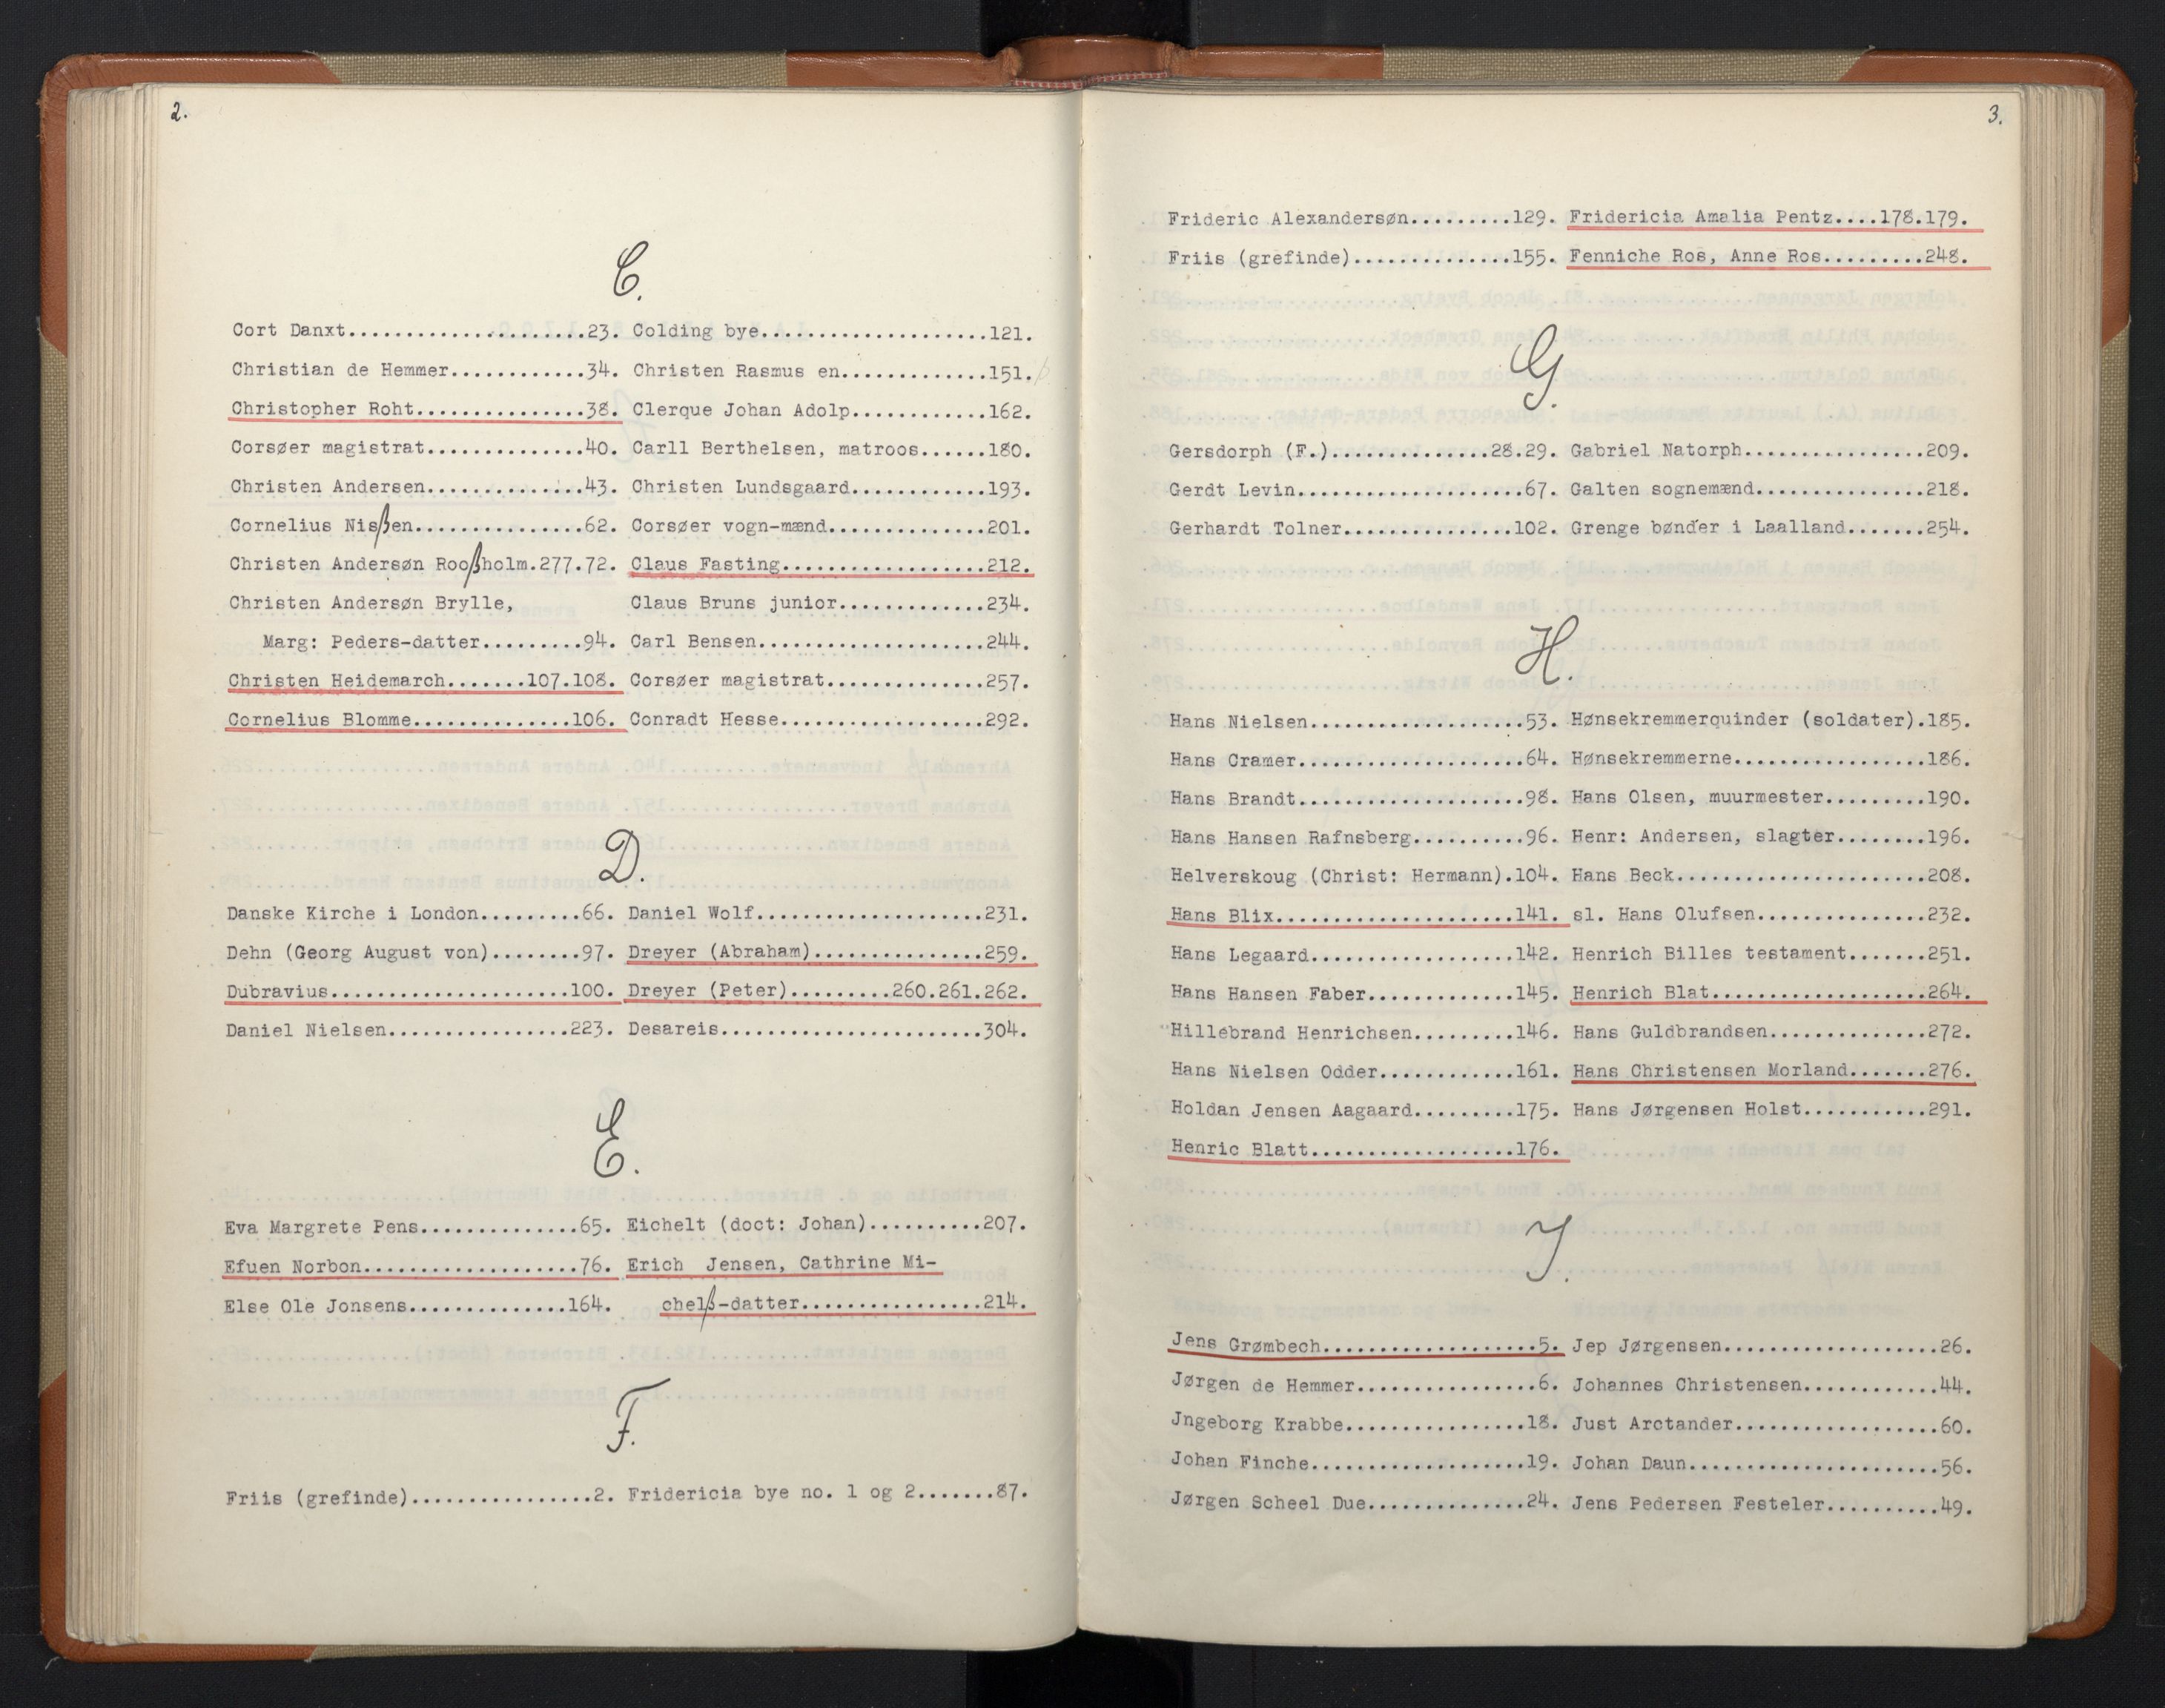 2.
C.
Cort Danxt.....................23. Colding bye....................121.
Christian de Hemmer............34. Christen Rasmus en.............151.
Christopher Roht...............38. Clerque Johan Adolp............162.
Corsøer magistrat..............40. Carll Berthelsen, matroos......180.
Christen Andersen..............43. Christen Lundsgaard............193.
Cornelius Nisßen...............62. Corsøer vogn-mænd..............201.
Christen Andersøn Rooßholm.277.72. Claus Fasting..................212.
Christen Andersøn Brylle, Claus Bruns junior.............234.
Marg: Peders-datter.........94. Carl Bensen....................244.
Christen Heidemarch.......107.108. Corsøer magistrat..............257.
Cornelius Blomme..............106. Conradt Hesse..................292.
D.
Danske Kirche i London.........66. Daniel Wolf....................231.
Dehn (Georg August von)........97. Dreyer (Abraham)...............259.
Dubravius.....................100. Dreyer (Peter).........260.261.262.
Daniel Nielsen................223. Desareis.......................304.
E.
Eva Margrete Pens..............65. Eichelt (doct: Johan)..........207.
Efuen Norbon...................76. Erich Jensen, Cathrine Mi-
Else Ole Jonsens..............164. chelß-datter................214.
F.
Friis (grefinde)................2. Fridericia bye no. 1 og 2.......87.
3.
Frideric Alexandersøn.........129. Fridericia Amalia Pentz....178.179.
Friis (grefinde)..............155. Fenniche Ros, Anne Ros.........248.
G.
Gersdorph (F.)..............28.29. Gabriel Natorph................209.
Gerdt Levin....................67. Galten sognemænd...............218.
Gerhardt Tolner...............102. Grenge bønder i Laalland.......254.
H.
Hans Nielsen...................53. Hønsekremmerquinder (soldater).185.
Hans Cramer....................64. Hønsekremmerne.................186.
Hans Brandt....................98. Hans Olsen, muurmester.........190.
Hans Hansen Rafnsberg..........96. Henr: Andersen, slagter........196.
Helverskoug (Christ: Hermann).104. Hans Beck......................208.
Hans Blix.....................141. sl. Hans Olufsen...............232.
Hans Legaard..................142. Henrich Billes testament.......251.
Hans Hansen Faber.............145. Henrich Blat...................264.
Hillebrand Henrichsen.........146. Hans Guldbrandsen..............272.
Hans Nielsen Odder............161. Hans Christensen Morland.......276.
Holdan Jensen Aagaard.........175. Hans Jørgensen Holst...........291.
Henric Blatt..................176.
J.
Jens Grømbech...................5. Jep Jørgensen...................26.
Jørgen de Hemmer................6. Johannes Christensen............44.
Jngeborg Krabbe................18. Just Arctander..................60.
Johan Finche...................19. Johan Daun......................56.
Jørgen Scheel Due..............24. Jens Pedersen Festeler..........49.